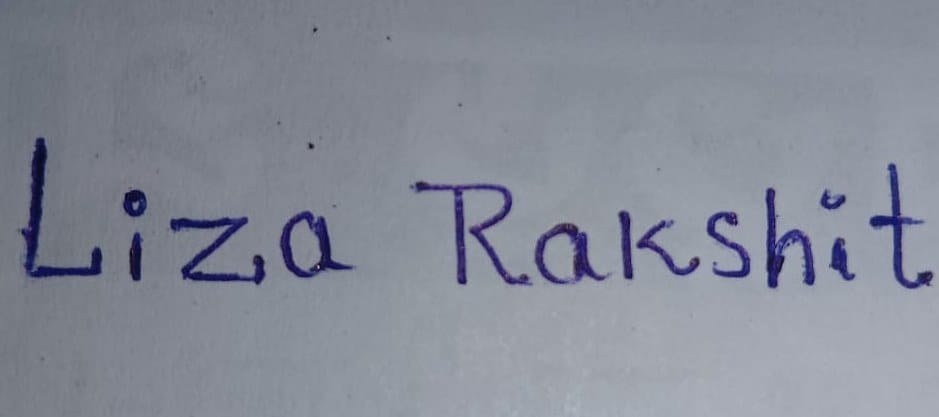 Liza Rakshit